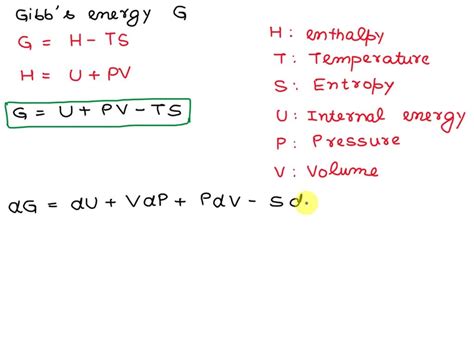 Gibb's energy G
G = H - TS
H = U + PV
G = U + PV - TS
H : enthalpy
T : Temperature
S : Entropy
U : Internal energy
P : Pressure
V : Volume
dG = dU + VdP + PdV - Sd